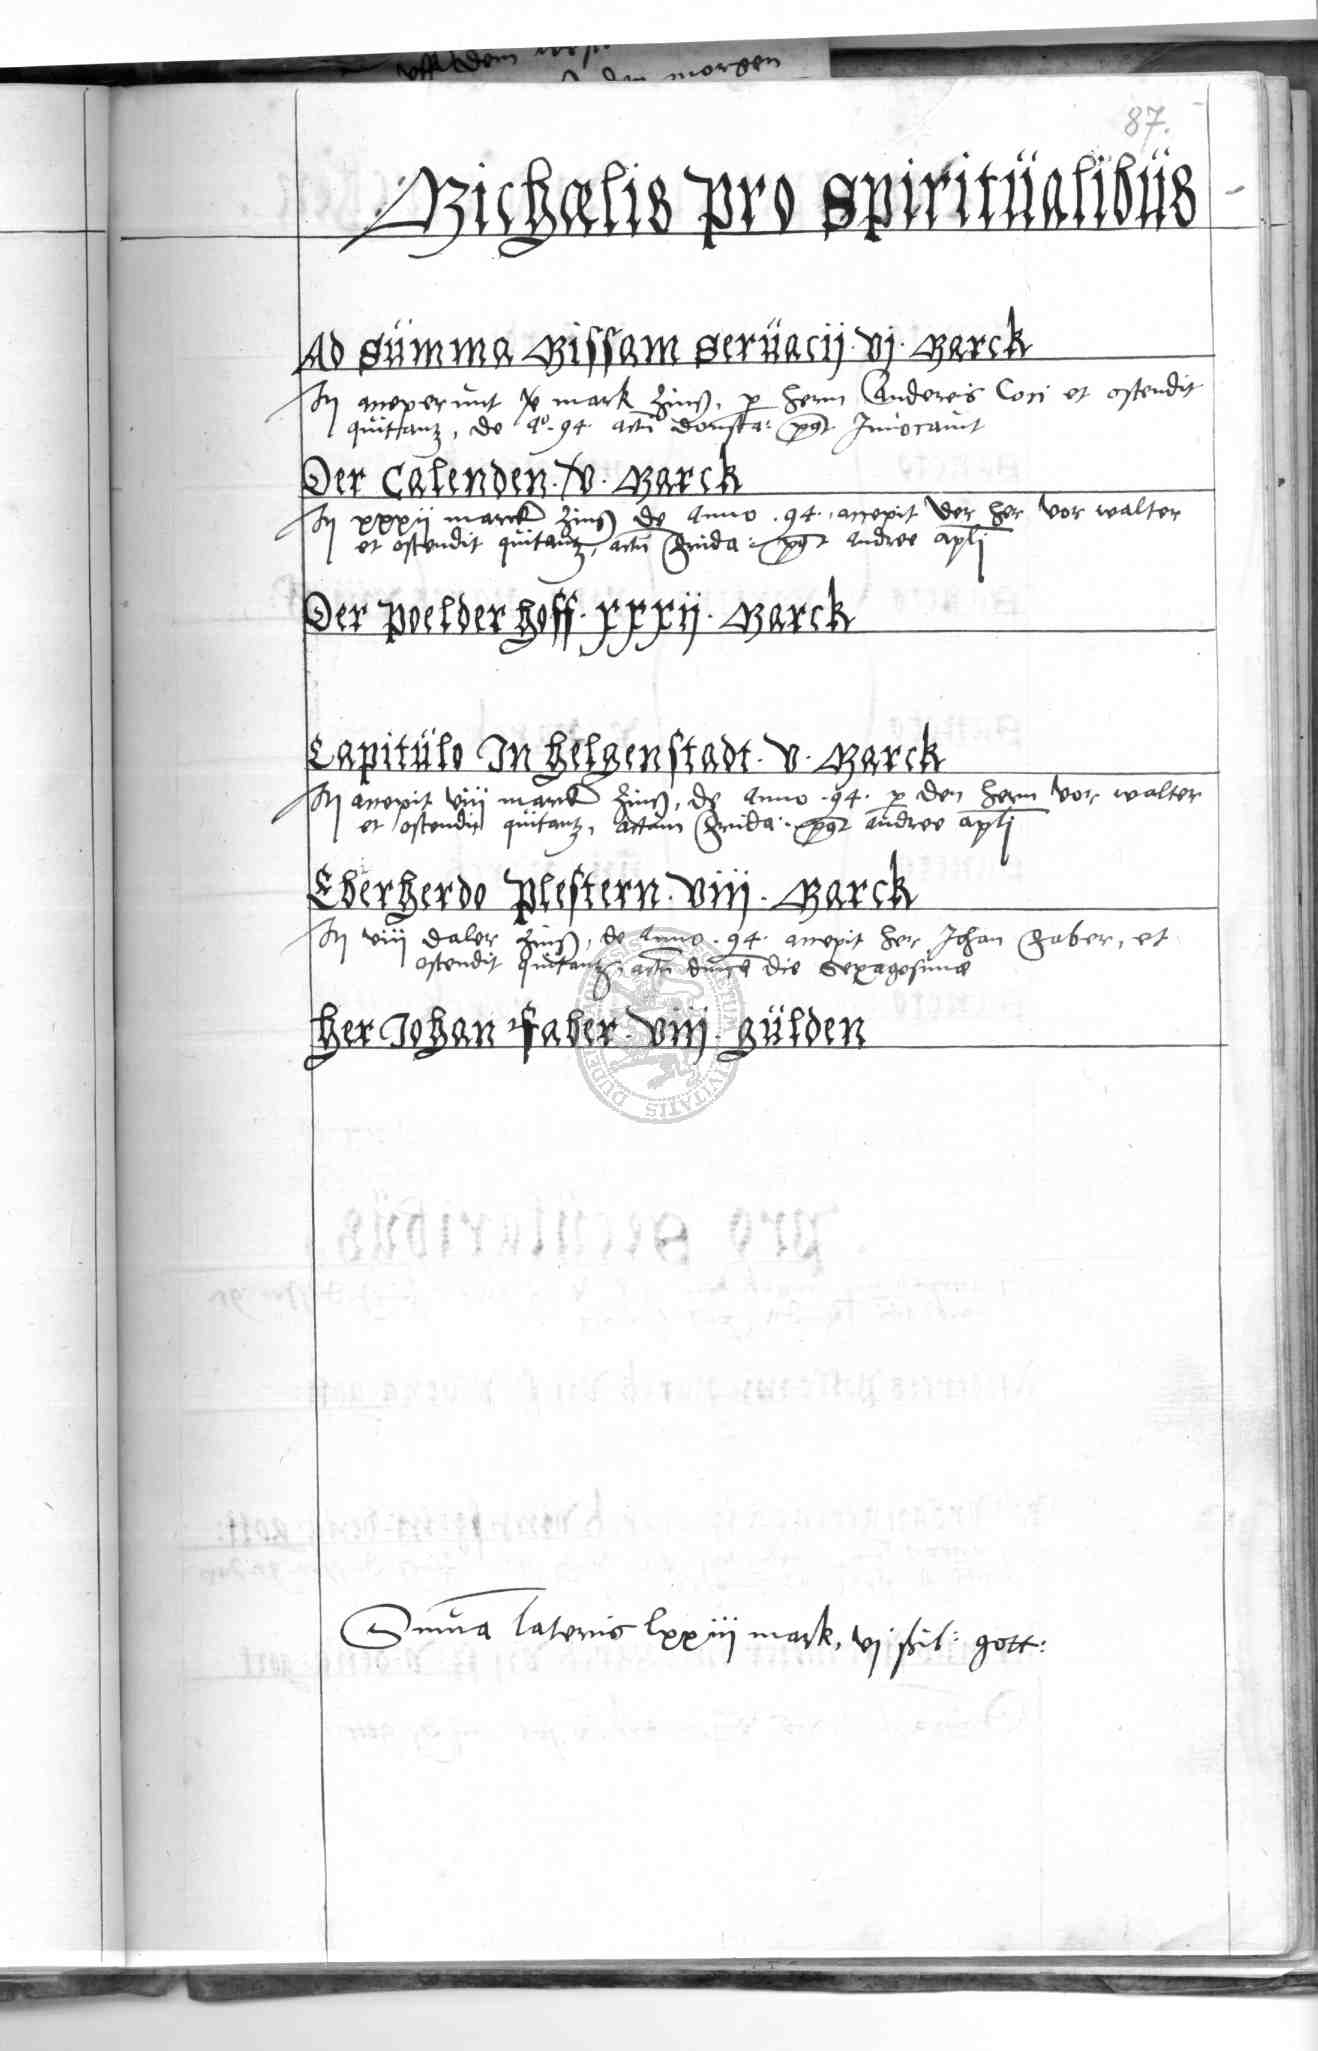 uff dem
den morgen
87.
Michaelis pro spiritüalibüs
Ad Sümma Missam Serüacij · vj · Marck
It acceperunt x mark Zinß, p hern Andereis Cori et ostendit
quitantz, de Ao · 94 · actu donsta: pgt Inuocauit
Der Calenden · X · Marck
It xxxij marck Zinß de Anno · 94 · accepit der her vor walter
et ostendit quitantz, actu Frida: pgt Andree apli
Der Poelder hoff · xxxij · Marck
Capitülo In Helgenstadt · V · Marck
It accepit viij marck Zinß, de Anno · 94 · p den hern vor walter
et ostendit quitantz, actum Frida: pgt andree apli
Eberherdo Plestern · Viij · Marck
It viij daler Zinß, de Anno · 94 · accepit her Johan Faber, et
ostendit quitantz, actu die Sexagesimae
Her Johan Faber · Viij · gülden
Suma lateris lxxiij mark, vj ßil: gott:
DUDER CIVITATIS